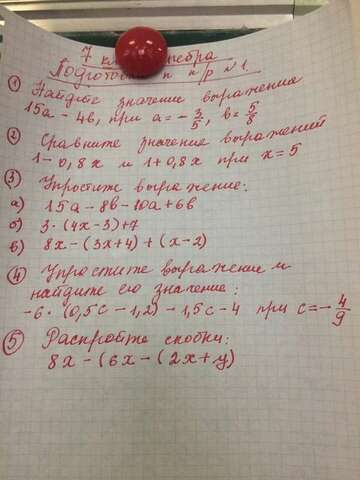 7 кл алгебра
Подготовка к к/р №1
① Найдите значение выражения
15a - 4в, при a = - 3/5, в = 5/8
② Сравните значение выражений
1 - 0,8x и 1 + 0,8x при x = 5
③ Упростите выражение:
а) 15a - 8в - 10a + 6в
б) 3·(4x - 3) + 7
в) 8x - (3x + 4) + (x - 2)
④ Упростите выражение и
найдите его значение:
-6·(0,5c - 1,2) - 1,5c - 4 при c = - 4/9
⑤ Раскройте скобки:
8x - (6x - (2x + y)